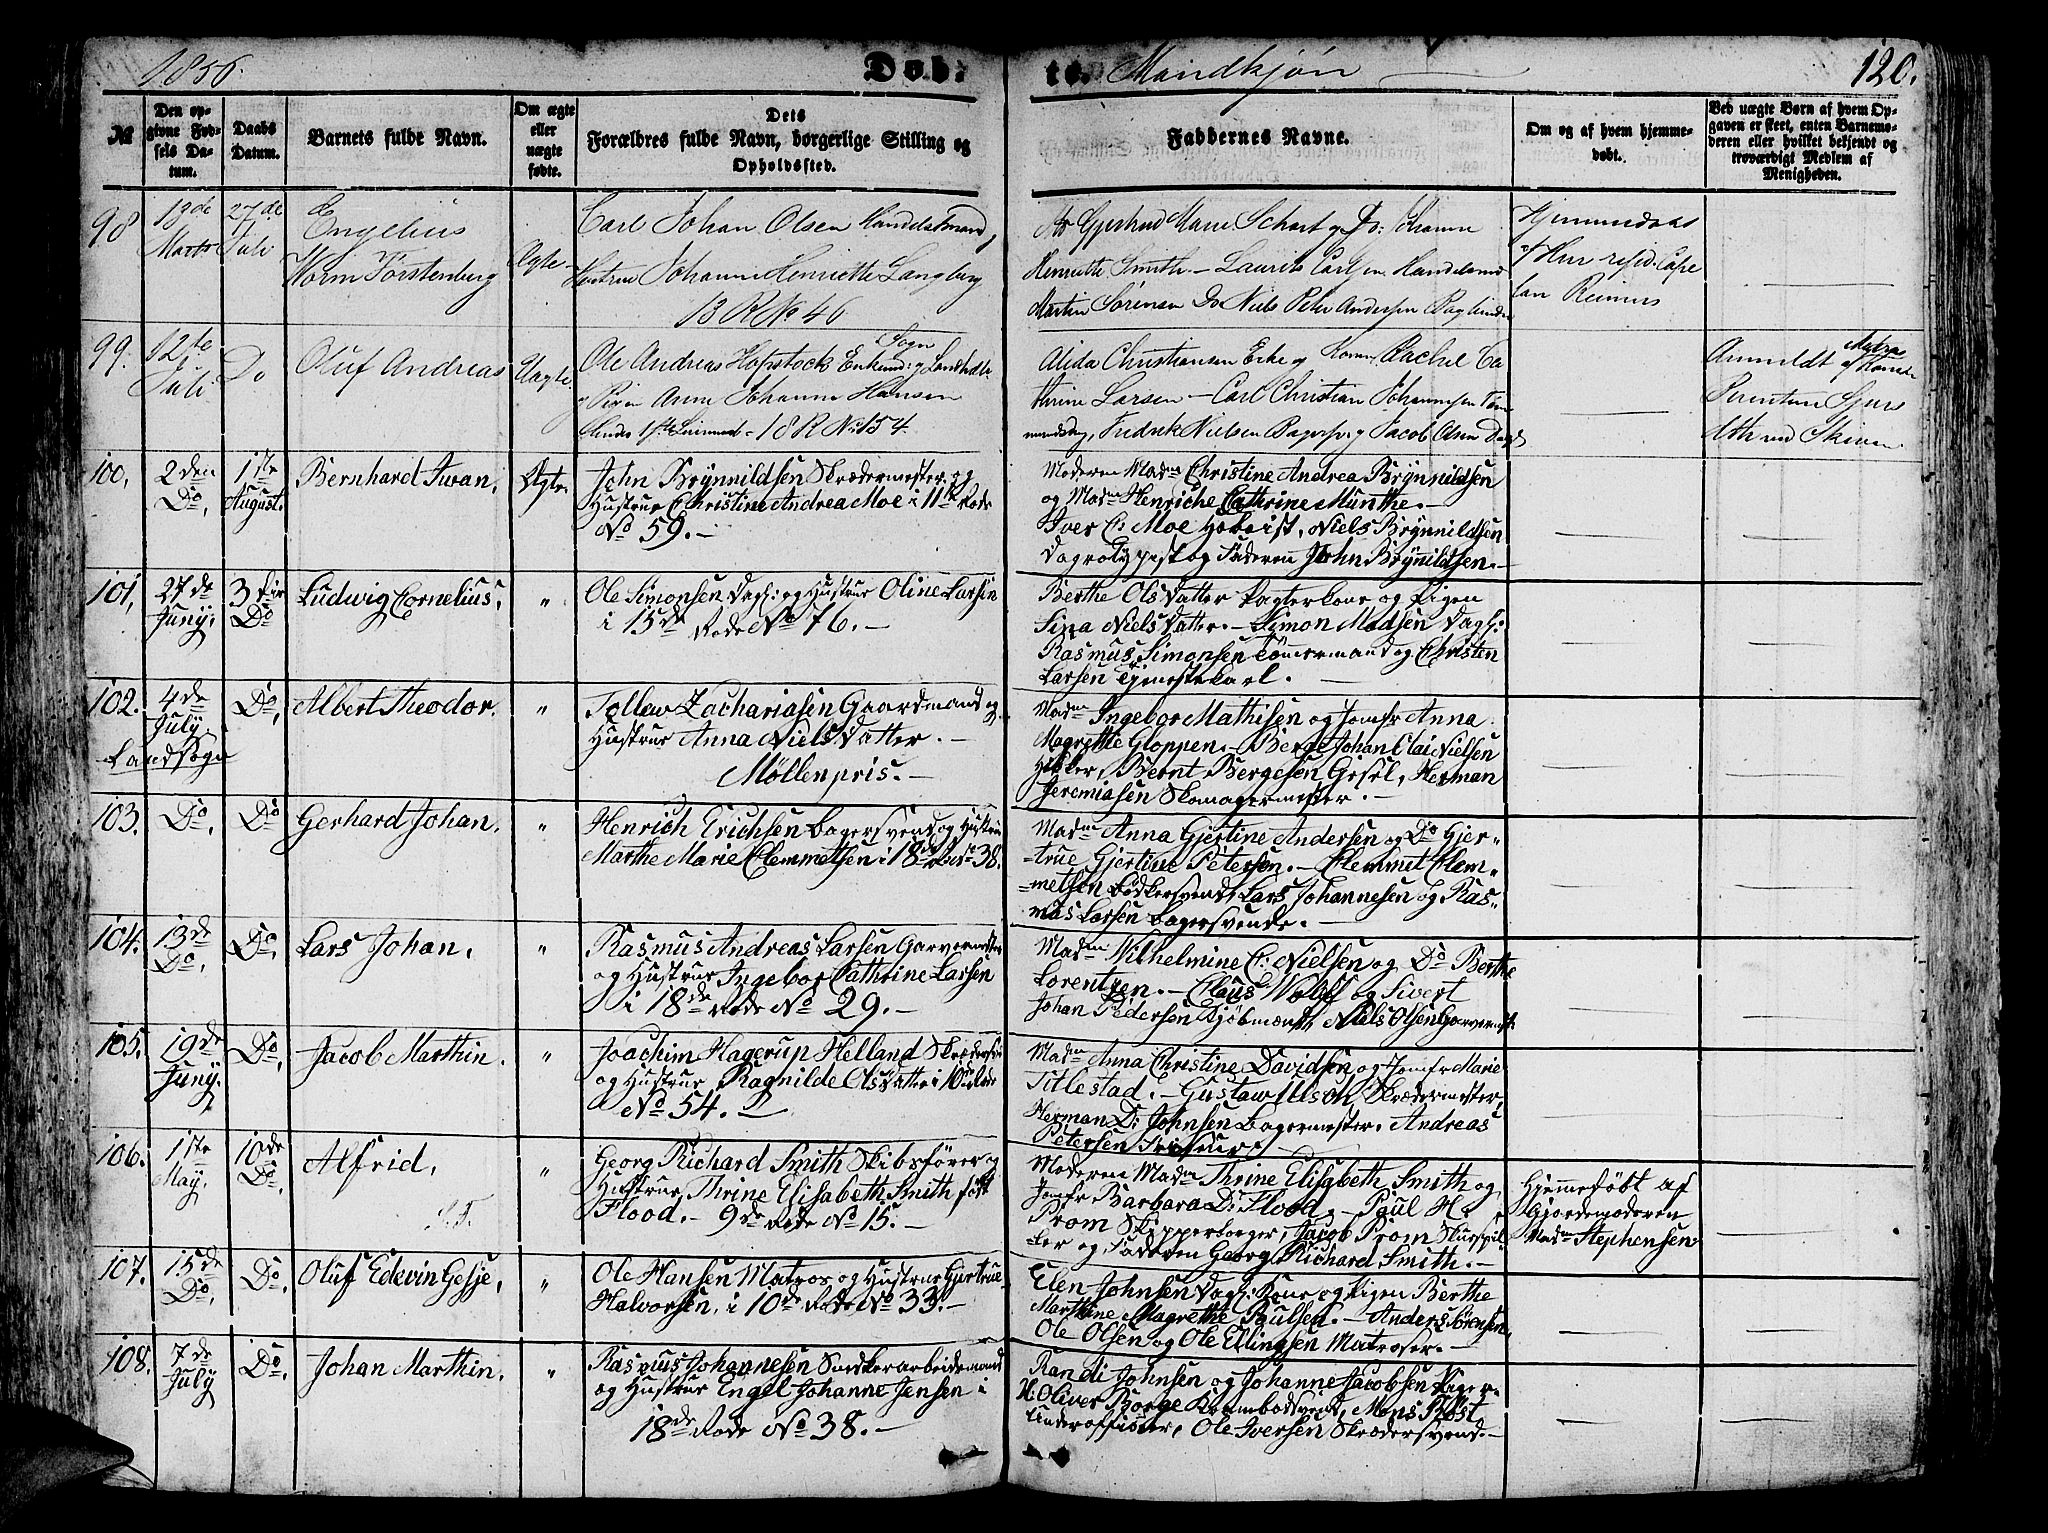 1856.
Døb-
te.
Mandkjøn
120.
№
Den op-
givne Fød-
sels Da-
tum.
Daabs
Datum.
Barnets fulde Navn.
Om ægte
eller
uægte
fødte.
Dets
Forældres fulde Navn, borgerlige Stilling og
Opholdssted.
Faddernes Navne.
Om og af hvem hjemme-
døbt.
Ved uægte Børn af hvem Op-
gaven er skeet, enten Barnemo-
deren eller hvilket bekjendt og
troværdigt Medlem af
Menigheden.
98
18de
Marts
27de
Juli
Engelius
Worm Forstenberg
Ægte
Carl Johan Olsen Handelsmand,
Hustrue Johanne Henriette Langberg
13 R No 46
Gjertrud Marie Do: Johanne
Henriette Smith - Laurits Handelsmd
Martin Sørensen Do Niels Peter Andersen
Hjemmedøbt
af Hrr resid. Cape
lan Reimers
99.
12te
Juli
Do
Oluf Andreas
Uægte
Ole Andreas Hopstock Enkemd: og
og Pigen Anne Johanne Hansen
18 R No 154.
Alida Christiansen Enke og Rachel Ca
thrine Larsen - Carl Christian Johannesen
Fredrik Nielsen og Jacob Olsen
Anmeldt af
100,
2den
Do,
1ste
August.
Bernhard Iwan,
Ægte.
John Brynnildsen Skrædermester, og
Hustrue Christine Andrea Moe i 11te Rode
No 59. -
Moderen Madm Christine Andrea Brynnildsen
og Madm Henriche Cathrine Munthe. -
Iver C. Moe Hoboist, Niels Brynnildsen
Dagrotypest og Faderen John Brynildsen. -
101,
27de
Juny,
3die
Do
Ludwig Cornelius,
"
Ole Simonsen Dagl: og Hustrue Oline Larsen
i 15de Rode No 76. -
Berthe Olsdatter Pagterkone og Pigen
Sina Nielsdatter. - Simon Madsen Dagl:
Rasmus Simonsen Tømmermand og Christen
Larsen Tjenestekarl. -
102.
4de
July.
Landsogn
Do,
Albert Theodor.
"
Tollew Zachariasen Gaardmand og
Hustrue Anna Nielsdatter. -
Möllenpris. -
Madm Ingebor Mathisen og Jomfr Anna
Magrethe Gloppen. - Berge Johan Clai Nielsen
Høker, Bernt Bergesen Gisøl, Herman
Jeremiasen Skomagermester. -
103.
Do,
Do
Gerhard Johan.
"
Henrich Erichsen Bagersvend og Hustrue
Marthe Marie Clemmetsen i 18de Rode No 38.
Madm Anna Gjertine Andersen og Do Gjer-
true Gjertine Petersen. - Clemmet Clem-
metsen Bødkersvend, Lars Johannesen og Ras-
mus Larsen Bagersvende. -
104.
13de
Do,
Do
Lars Johan.
"
Rasmus Andreas Larsen Garvermester
og Hustrue Ingebor Cathrine Larsen
i 18de Rode No 29. -
Madm Wilhelmine C: Nielsen og Do Berthe
Lorentzen. - Claus Wolff og Sivert
Johan Pedersen Kjøbmænd, Niels Olsen Garvermst
105.
19de
Juny.
Do,
Jacob Marthin.
"
Joachim Hagerup Helland Skræder
og Hustrue Ragnilde Olsdatter i Rode
No 54. -
Madm Anna Christine Davidsen og Jomfr Marie
Titlestad. - Gustaw Ilson Skrædermester,
Herman D: Johnsen Bagermester. Andreas
Petersen Friseur. -
106.
1ste
May,
10de
Do,
Alfrid,
"
Georg Richard Smith Skibsfører og
Hustrue Thrine Elisabeth Smith født
Flood. - 9de Rode No 15. -
Moderen Madm Thrine Elisabeth Smith og
Jomfr Barbara D: Flood. - Paul H.
Prom Skipperborger, Jacob Prom
og Faderen Georg Richard Smith. -
Hjemmedøbt af
Gjordemoderen
Madm Stephensen
107.
15de
Do,
Do.
Oluf Edevin Gesje,
"
Ole Hansen Matros og Hustrue Gjertrue
Halvorsen, i 10de Rode No 33. -
Elen Johnsen Dagl: Kone og Pigen Berthe
Marthine Magrethe Paulsen. - Anders Sørensen,
Ole Olsen og Ole Ellingsen Matroser. -
108.
7de
July
Do.
Johan Marthin.
"
Rasmus Johannesen Snedkerarbeidsmand
og Hustrue Engel Johanne Jensen i
18de Rode No 38. -
Randi Johnsen og Johanne Jacobsen Piger -
H: Oliver Borge Krambodsvend, Mons Røst
Underofficier, Ole Iversen Skrædersvend. -